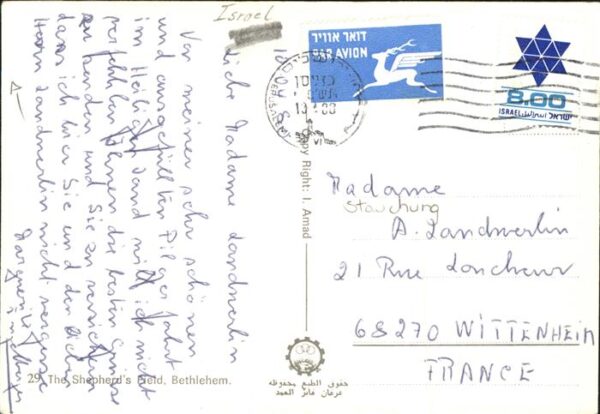 Israel
10.04.80
Liebe Madame Landwerlin
Von meiner sehr schönen
und ausgefüllten Pilgerfahrt
im Heiligen Land will ich nicht
verfehlen Ihnen die besten Grüsse
zu senden und Sie zu versichern
dass ich hier Sie und den lieben
Herrn Landwerlin nicht vergesse
Marguerite
29. The Shepherd's Field, Bethlehem.
Copy Right: I. Amad
דואר אוויר
PAR AVION
8.00
ISRAEL ישראל
Madame
Stauchung
A. Landwerlin
21 Rue Loucheur
68270 WITTENHEIM
FRANCE
حقوق الطبع محفوظة